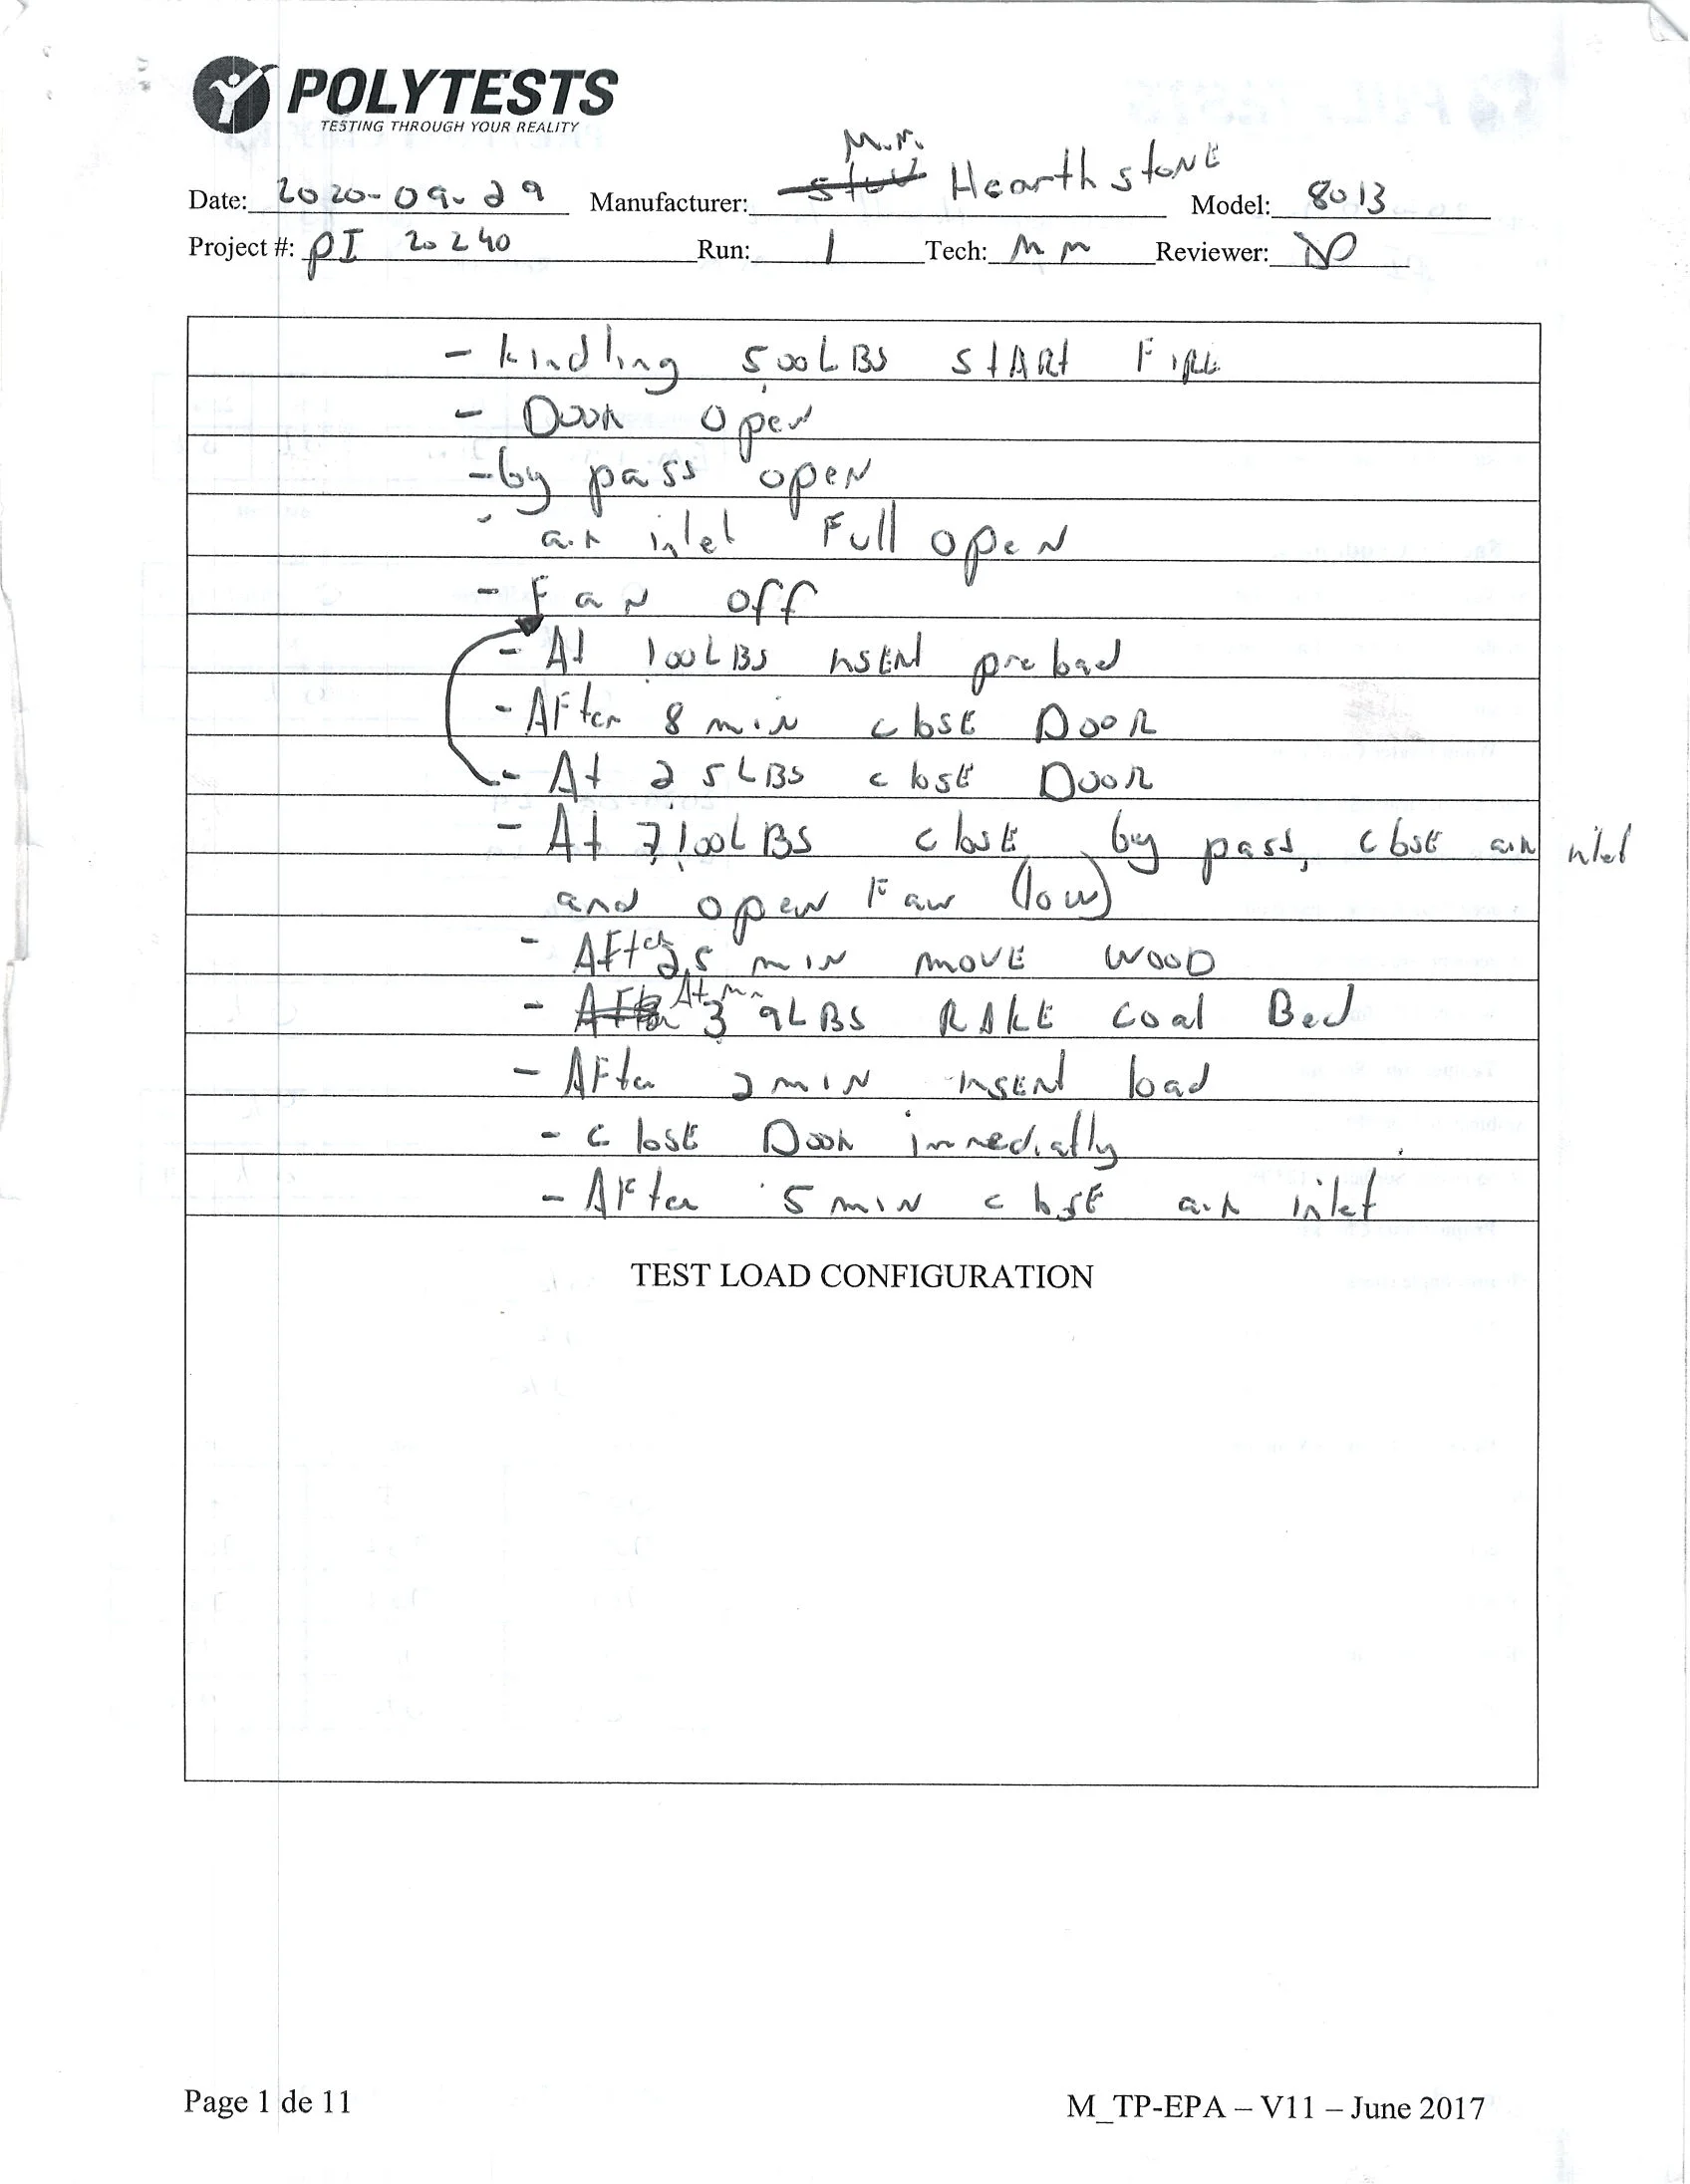 POLYTESTS
TESTING THROUGH YOUR REALITY
M.M.
Date: 2020-09-29 Manufacturer: Hearthstone Model: 8013
Project #: PI 20240 Run: 1 Tech: MM Reviewer:
- kindling 5,00LBS START FIRE
- Door open
- by pass open
- air inlet Full open
- Fan off
- At 1,00LBS insert preload
- After 8 min close Door
- At 2 5LBS close Door
- At 7,100LBS close by pass, close air inlet
and open Fan (low)
- After 25 min move wood
- At 3,9LBS RAKE coal Bed
- After 2 min insert load
- close Door immediatly
- After 5 min close air inlet
TEST LOAD CONFIGURATION
Page 1 de 11 M_TP-EPA – V11 – June 2017